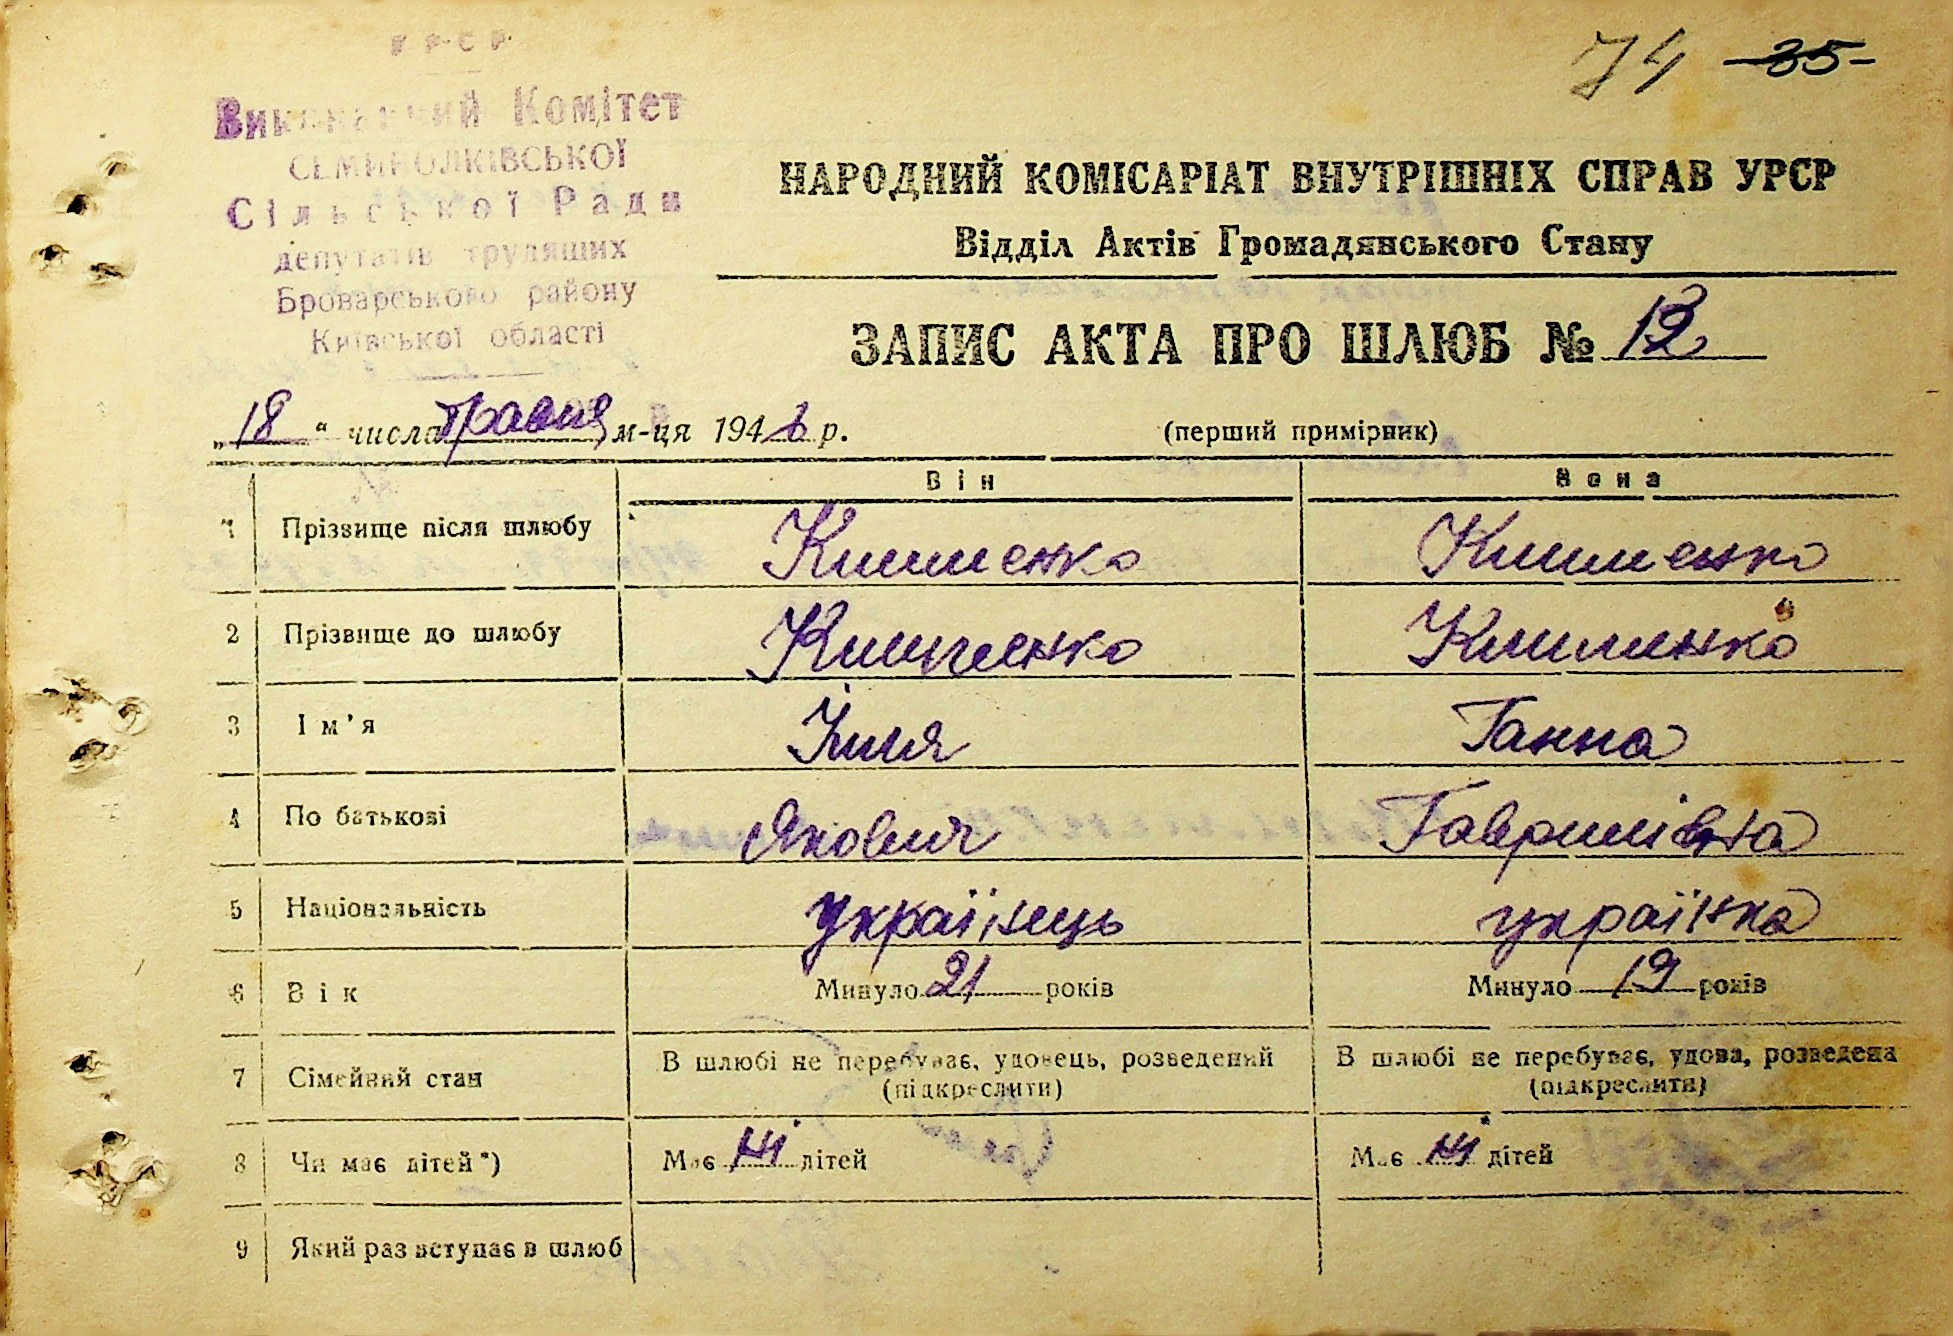 УРСР
74 35
Виконавчий Комітет
СЕМИПОЛКІВСЬКОЇ
Сільської Ради
депутатів трудящих
Броварського району
Київської області
НАРОДНИЙ КОМІСАРІАТ ВНУТРІШНІХ СПРАВ УРСР
Відділ Актів Громадянського Стану
ЗАПИС АКТА ПРО ШЛЮБ № 12
„18“ числа травня м-ця 1946 р.
(перший примірник)
Він Вона
1 Прізвище після шлюбу Клименко Клименко
2 Прізвище до шлюбу Клименко Клименко
3 Ім'я Ілля Ганна
4 По батькові Якович Гаврилівна
5 Національність українець українка
6 Вік Минуло 21 років Минуло 19 років
7 Сімейний стан В шлюбі не перебуває, удовець, розведений (підкреслити) В шлюбі не перебуває, удова, розведена (підкреслити)
8 Чи має дітей*) Має ні дітей Має ні дітей
9 Який раз вступає в шлюб